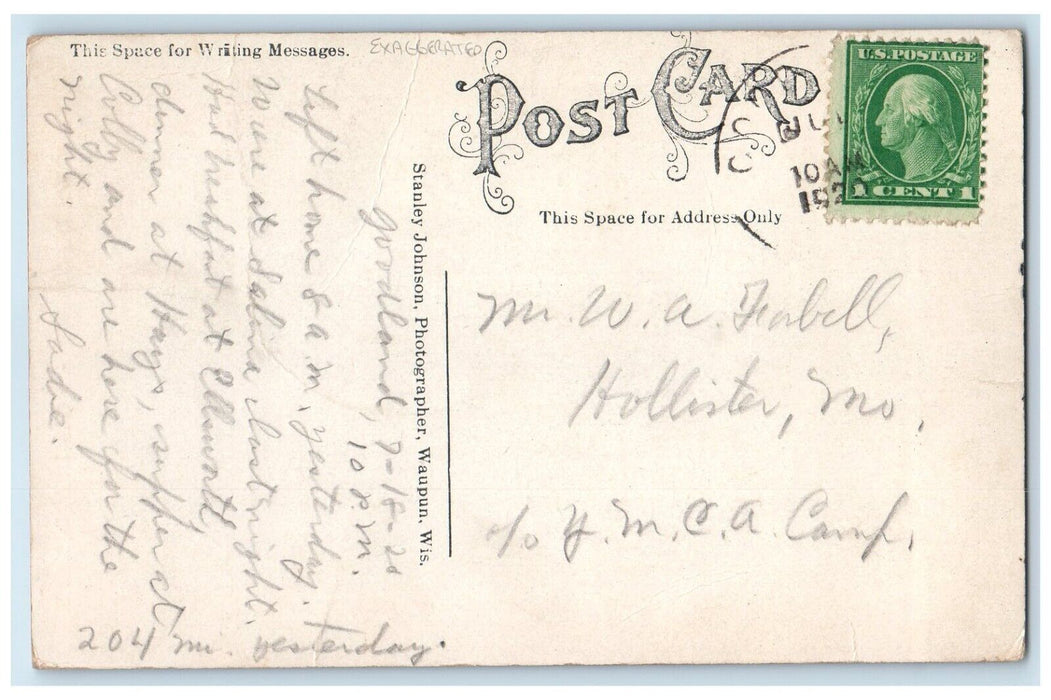 This Space for Writing Messages.
EXAGGERATED
POST CARD
U.S. POSTAGE
1 CENT 1
10 AM
This Space for Address Only
Stanley Johnson, Photographer, Waupun, Wis.
Goodland, 7-18-20
10 P.M.
Left home 8 A.M. yesterday.
Were at Salina last night.
Had breakfast at Ellsworth,
dinner at Hays, supper at
Colby and are here for the
night.
Sadie.
204 mi. yesterday.
Mr. W. A. Forbell,
Hollister, Mo.
c/o Y. M. C. A. Camp.